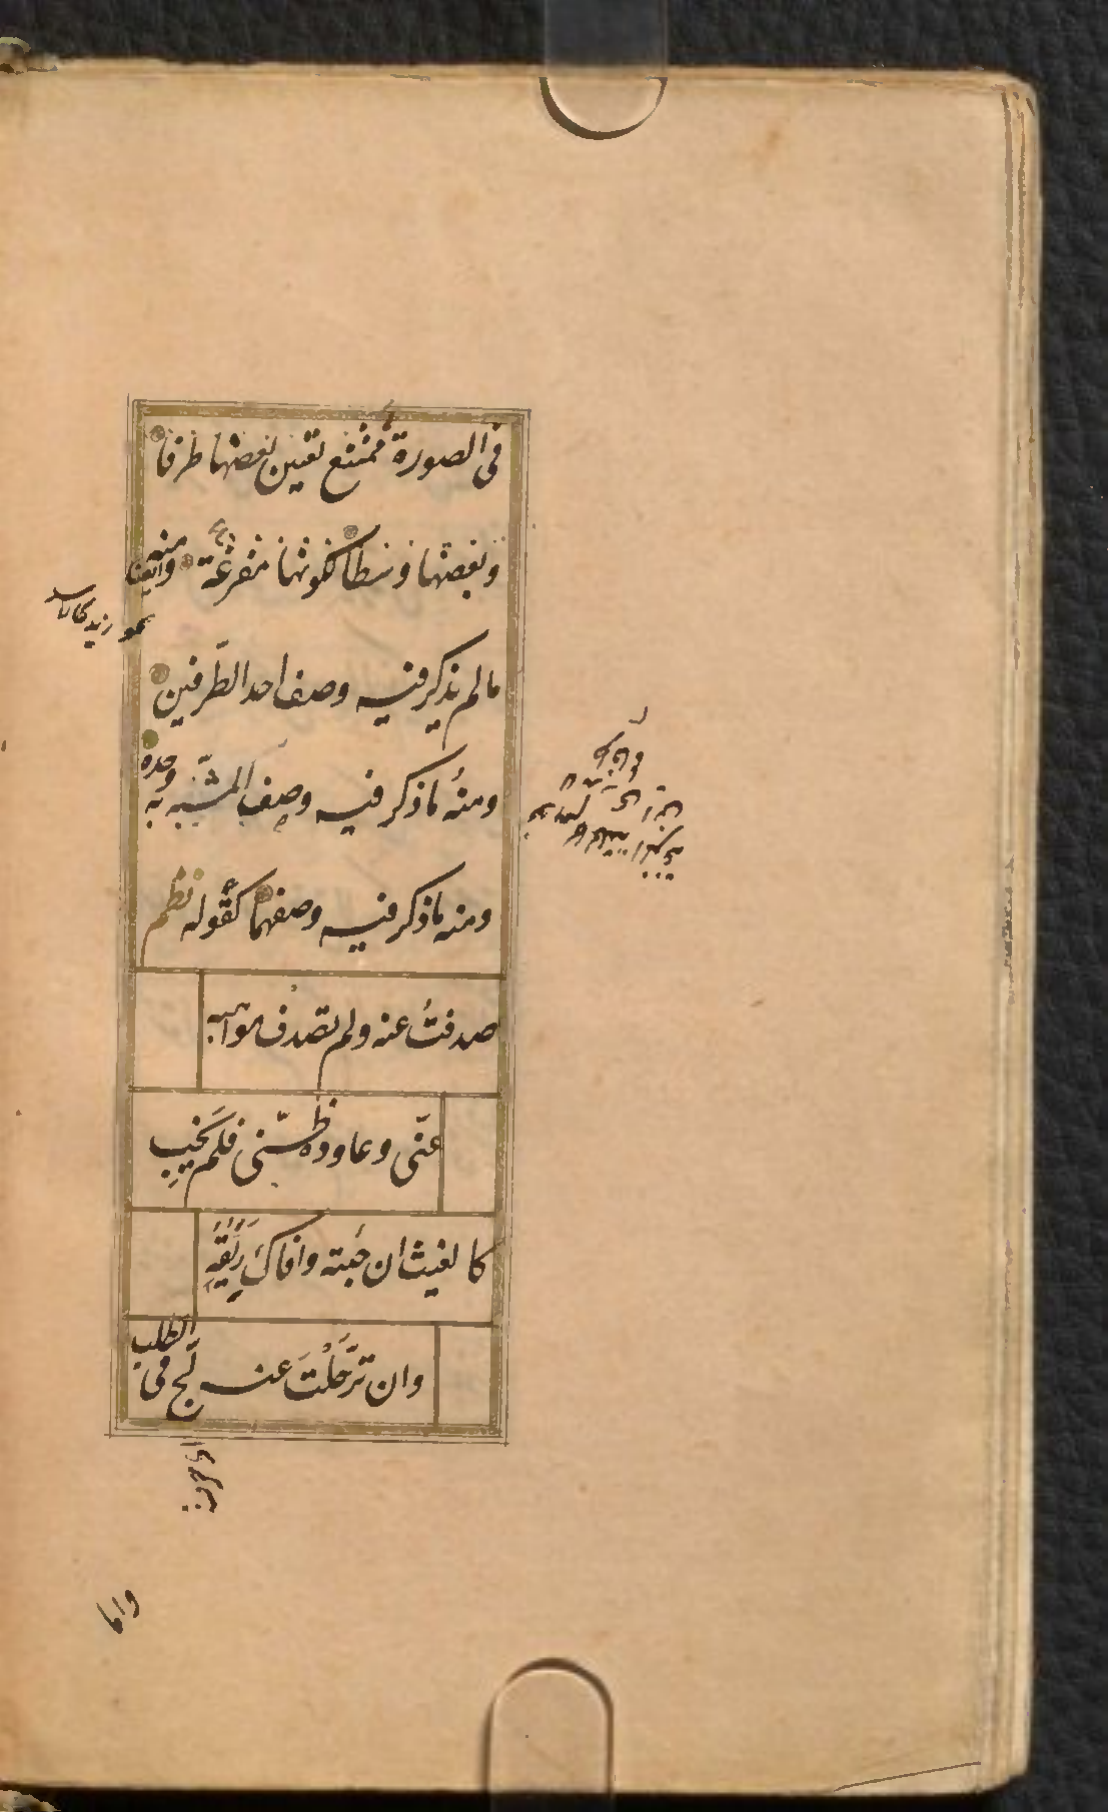 في الصورة يمتنع تعيين بعضها طرفا
وبعضها وسطا لكونها مفرغة وايضا منه
نحو زيد كالاسد
مالم يذكر فيه وصف احد الطرفين
ومنه ماذكر فيه وصف المشبه به وحده
ومنه ماذكر فيه وصفهما كقوله نظم
صدفت عنه ولم تصدف مواهبه
عنى وعاوده ظنى فلم يخب
كالغيث ان جئته وافاك ريقه
وان ترحلت عنه لج فى الطلب
واما